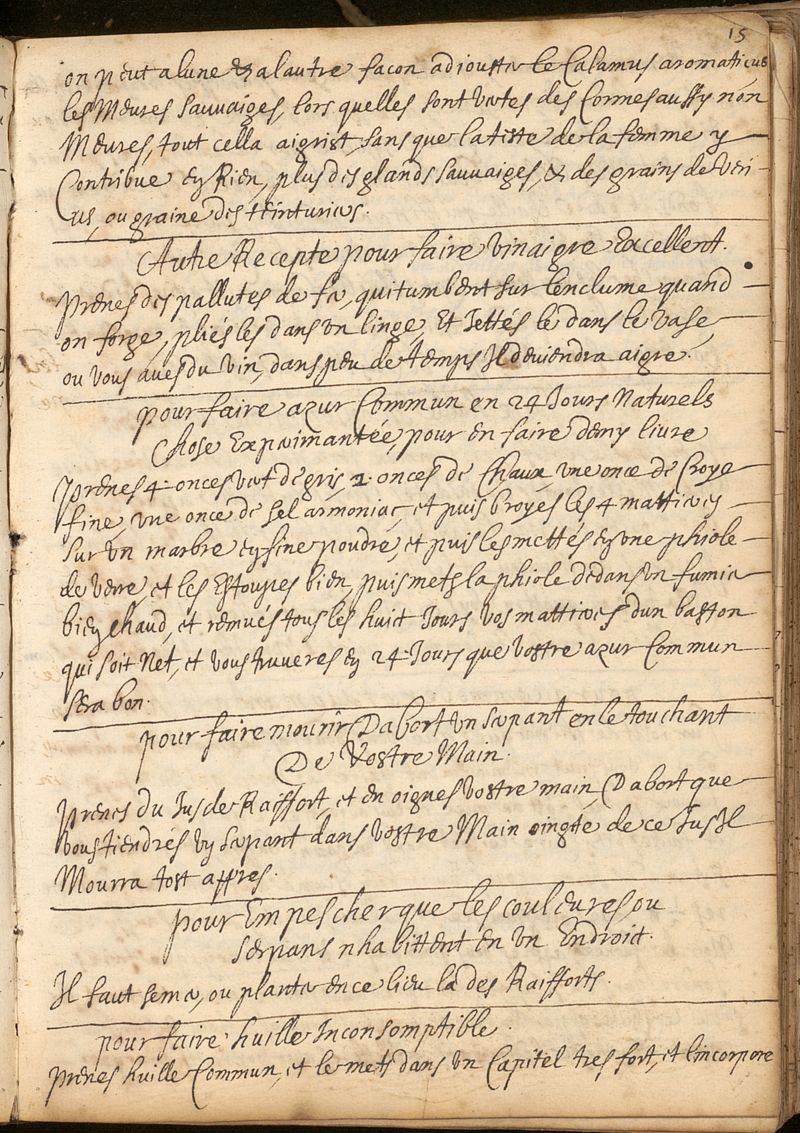 15
on peut a lune & a lautre facon adiouster le Calamus aromaticus
les Meures sauvaiges, lors quelles sont vertes des Cormes aussy non
Meures, tout cella aigrist, sans que la teste de la femme y
Contribue en Rien, plus des glands sauvaiges, & des grains de Ver-
ius, ou graine des teinturies.
Autre Recepte pour faire vinaigre Excellent.
prenes des pallutes de fer, qui tumbent sur lenclume quand
on forge, pliés les dans un linge, Et Jettés le dans le vase,
ou vous aves du vin, dans peu de temps Il deviendra aigre.
pour faire azur Commun en 24 Jours Naturels
Chose Experimantée, pour en faire demy livre
prenes 4 onces vert de gris, 2 onces de Chaux, une once de Croye
fine, une once de sel armoniac, et puis broyes les 4 mattieres
sur un marbre en fine poudre, et puis les mettés en une phiole
de verre, et les Estoupes bien, puis mets la phiole dedans un fumier
bien chaud, et remués tous les huict Jours vos mattieres dun baston
qui soit Net, et vous truveres en 24 Jours que vostre azur Commun
sera bon.
pour faire mourir Dabort un serpant en le touchant
De Vostre Main.
prenes du Jus de Raiffort, et en oignes vostre main, Dabort que
vous tiendrés un serpant dans vostre Main oingte de ce Jus Il
Mourra tost appres.
pour Empescher que les couleures ou
serpans nhabittent en un Endroict.
Il faut semer, ou planter en ce lieu la des Raifforts.
pour faire huille Inconsomptible.
prenes huille Commun, et le mets dans un Capitel tres fort, et lincorpore